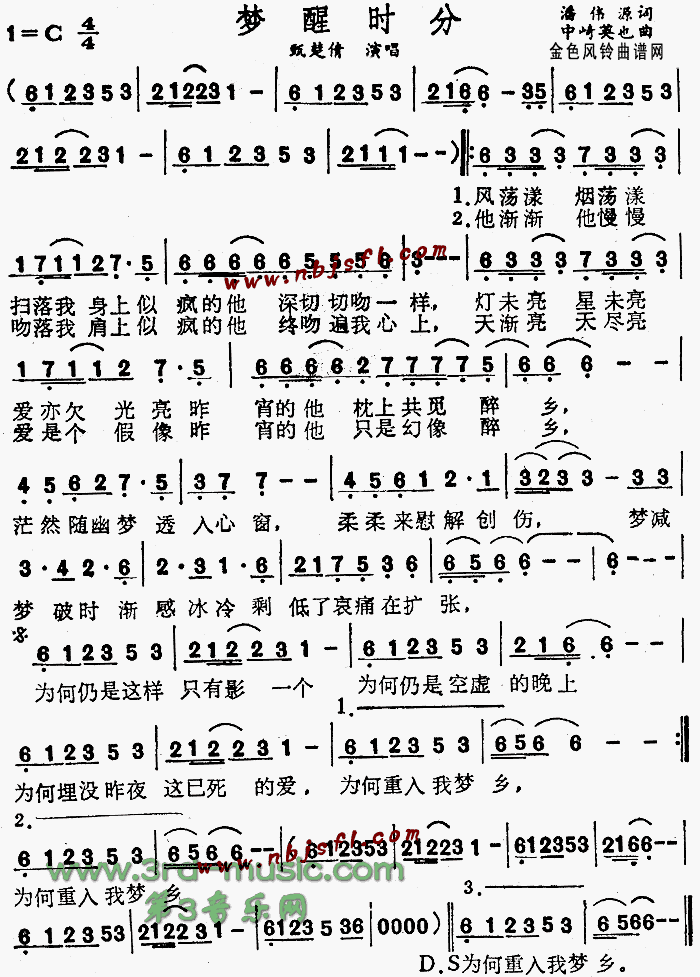 梦醒时分
1=C 4/4
潘伟源词
中崎英也曲
甄楚倩 演唱
金色风铃曲谱网
(6 1 2 3 5 3 | 2 1 2 2 3 1 - | 6 1 2 3 5 3 | 2 1 6 6 - 3 5 | 6 1 2 3 5 3 |
2 1 2 2 3 1 - | 6 1 2 3 5 3 | 2 1 1 1 - - ) ‖: 6 3 3 3 7 3 3 3 |
1.风荡漾 烟荡漾
2.他渐渐 他慢慢
1 7 1 1 2 7 · 5 | 6 6 6 6 6 5 5 5 6 | 3 - - - | 6 3 3 3 7 3 3 3 |
www.nbjsfl.com
扫落我 身上似 疯的他 深切切吻一样, 灯未亮 星未亮
吻落我 肩上似 疯的他 终吻遍我心上, 天渐亮 天尽亮
1 7 1 1 2 7 · 5 | 6 6 6 6 2 7 7 7 7 5 | 6 6 6 - - |
爱亦欠 光亮昨 宵的他 枕上共觅 醉 乡,
爱是个 假像昨 宵的他 只是幻像 醉 乡,
4 · 5 6 2 7 · 5 | 3 7 7 - - | 4 5 6 1 2 · 1 | 3 2 3 3 - 3 3 |
茫然随幽梦透 入心窗, 柔柔来慰解创伤, 梦减
3 · 4 2 · 6 | 2 · 3 1 · 6 | 2 1 7 5 3 6 | 6 5 6 6 - - | 6 - - - |
梦 破时 渐感冰冷剩 低了哀痛在扩 张,
𝄋
6 1 2 3 5 3 | 2 1 2 2 3 1 - | 6 1 2 3 5 3 | 2 1 6 6 - - |
为何仍是这样 只有影 一个 为何仍是空虚 的晚上
1.
6 1 2 3 5 3 | 2 1 2 2 3 1 - | 6 1 2 3 5 3 | 6 5 6 6 - - :‖
为何埋没昨夜 这已死 的爱, 为何重入我梦 乡,
2.
6 1 2 3 5 3 | 6 5 6 6 - - (6 1 2 3 5 3 | 2 1 2 2 3 1 - | 6 1 2 3 5 3 | 2 1 6 6 - - |
www.nbjsfl.com
www.3rd-music.com
为何重入我梦 乡
第3音乐网
3.
6 1 2 3 5 3 | 2 1 2 2 3 1 - | 6 1 2 3 5 3 6 | 0 0 0 0 ) ‖ 6 1 2 3 5 3 | 6 5 6 6 - - ‖
D.S为何重入我梦 乡。